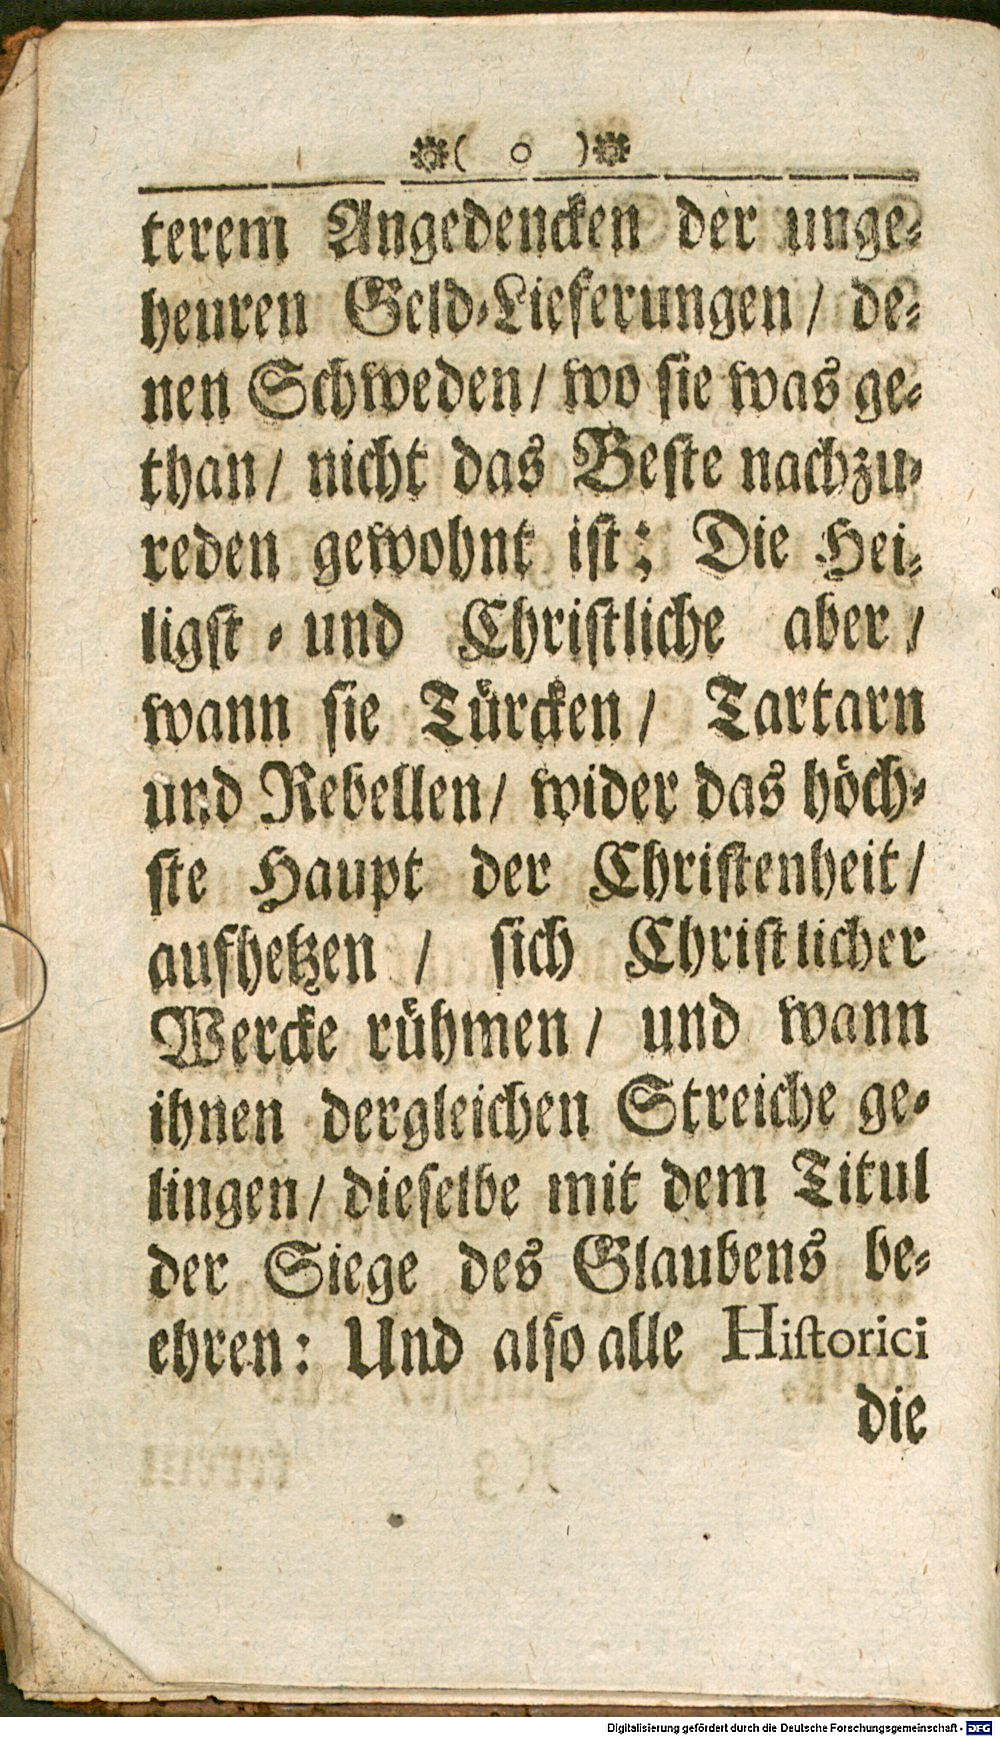 ❁( o )❁
terem Angedencken der unge-
heuren Geld-Lieferungen / de-
nen Schweden / wo sie was ge-
than / nicht das Beste nachzu-
reden gewohnt ist; Die Hei-
ligst - und Christliche aber /
wann sie Türcken / Tartarn
und Rebellen / wider das höch-
ste Haupt der Christenheit /
aufhetzen / sich Christlicher
Wercke rühmen / und wann
ihnen dergleichen Streiche ge-
lingen / dieselbe mit dem Titul
der Siege des Glaubens be-
ehren: Und also alle Historici
die
Digitalisierung gefördert durch die Deutsche Forschungsgemeinschaft - DFG